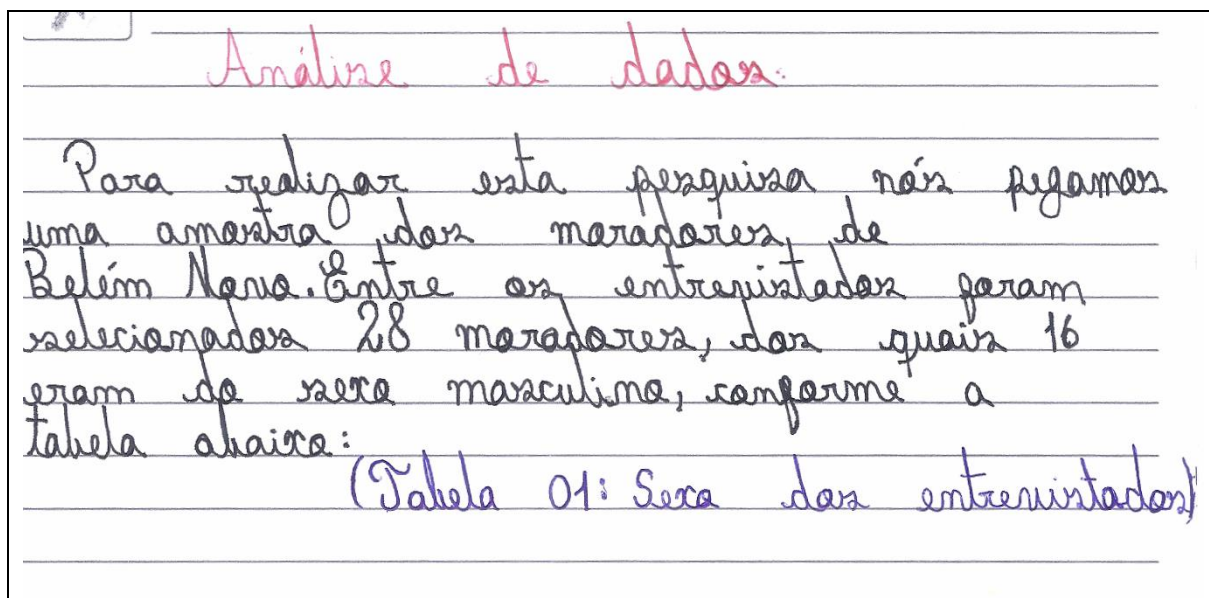 Análise de dados.
Para realizar esta pesquisa nós pegamos
uma amostra dos moradores de
Belém Novo. Entre os entrevistados foram
selecionados 28 moradores, dos quais 16
eram do sexo masculino, conforme a
tabela abaixo:
(Tabela 01: Sexo dos entrevistados)